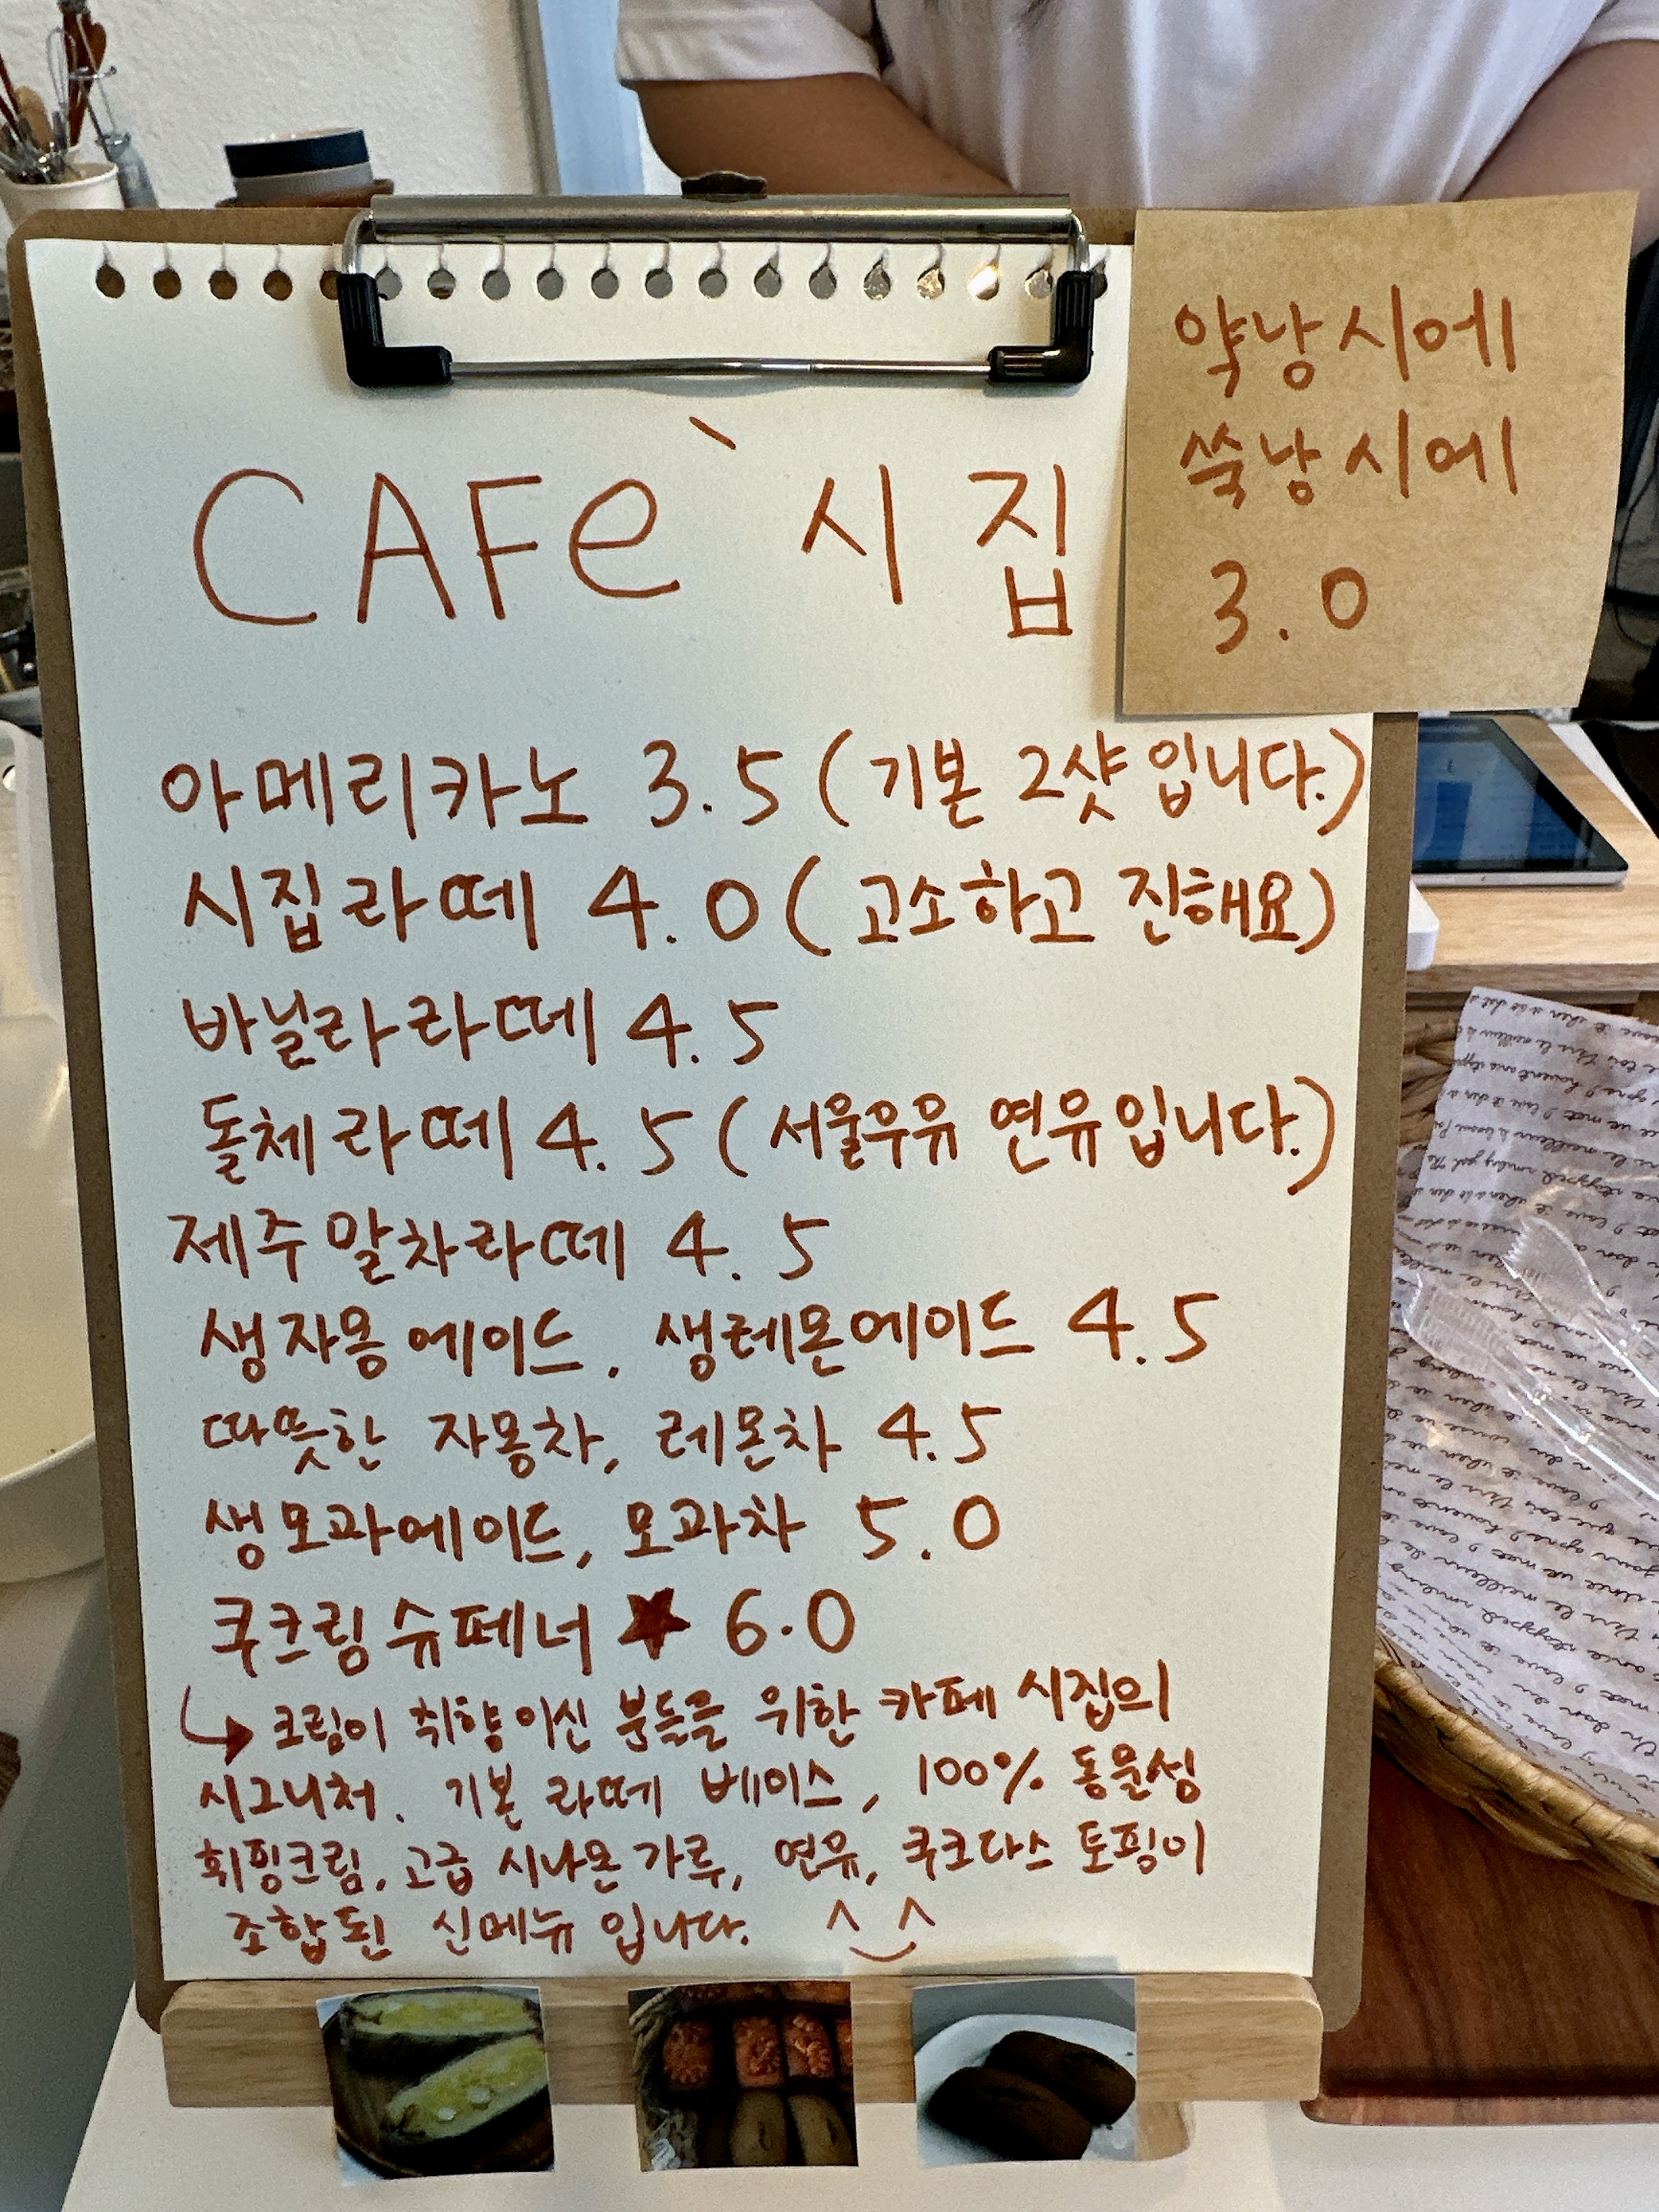 CAFè 시집
약낭시에
쑥낭시에
3.0
아메리카노 3.5 (기본 2샷입니다.)
시집라떼 4.0 (고소하고 진해요)
바닐라라떼 4.5
돌체라떼 4.5 (서울우유 연유입니다.)
제주말차라떼 4.5
생자몽에이드, 생레몬에이드 4.5
따뜻한 자몽차, 레몬차 4.5
생모과에이드, 모과차 5.0
쿠크림슈페너 ★ 6.0
↳ 크림이 취향이신 분들을 위한 카페 시집의
시그니처. 기본 라떼 베이스, 100% 동물성
휘핑크림, 고급 시나몬가루, 연유, 쿠크다스 토핑이
조합된 신메뉴입니다. ^‿^